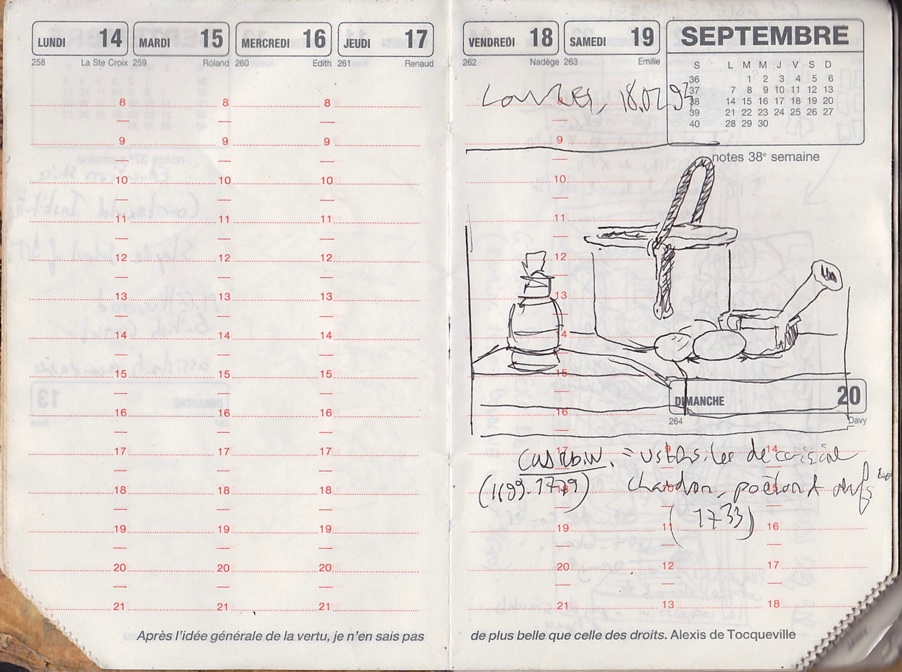 LUNDI 14 MARDI 15 MERCREDI 16 JEUDI 17
258 La Ste Croix 259 Roland 260 Edith 261 Renaud
8 8 8
9 9 9
10 10 10
11 11 11
12 12 12
13 13 13
14 14 14
15 15 15
16 16 16
17 17 17
18 18 18
19 19 19
20 20 20
21 21 21
Après l'idée générale de la vertu, je n'en sais pas
VENDREDI 18 SAMEDI 19 SEPTEMBRE
262 Nadège 263 Emilie
S L M M J V S D
36 1 2 3 4 5 6
37 7 8 9 10 11 12 13
38 14 15 16 17 18 19 20
39 21 22 23 24 25 26 27
40 28 29 30
notes 38e semaine
9
10
11
12
13
14
15
16
DIMANCHE 20
264 Davy
= ustensiles de cuisine
(1699-1779) chaudron, poêlon
(1733)
17 14
18
19 11 16
20 12 17
21 13 18
de plus belle que celle des droits. Alexis de Tocqueville